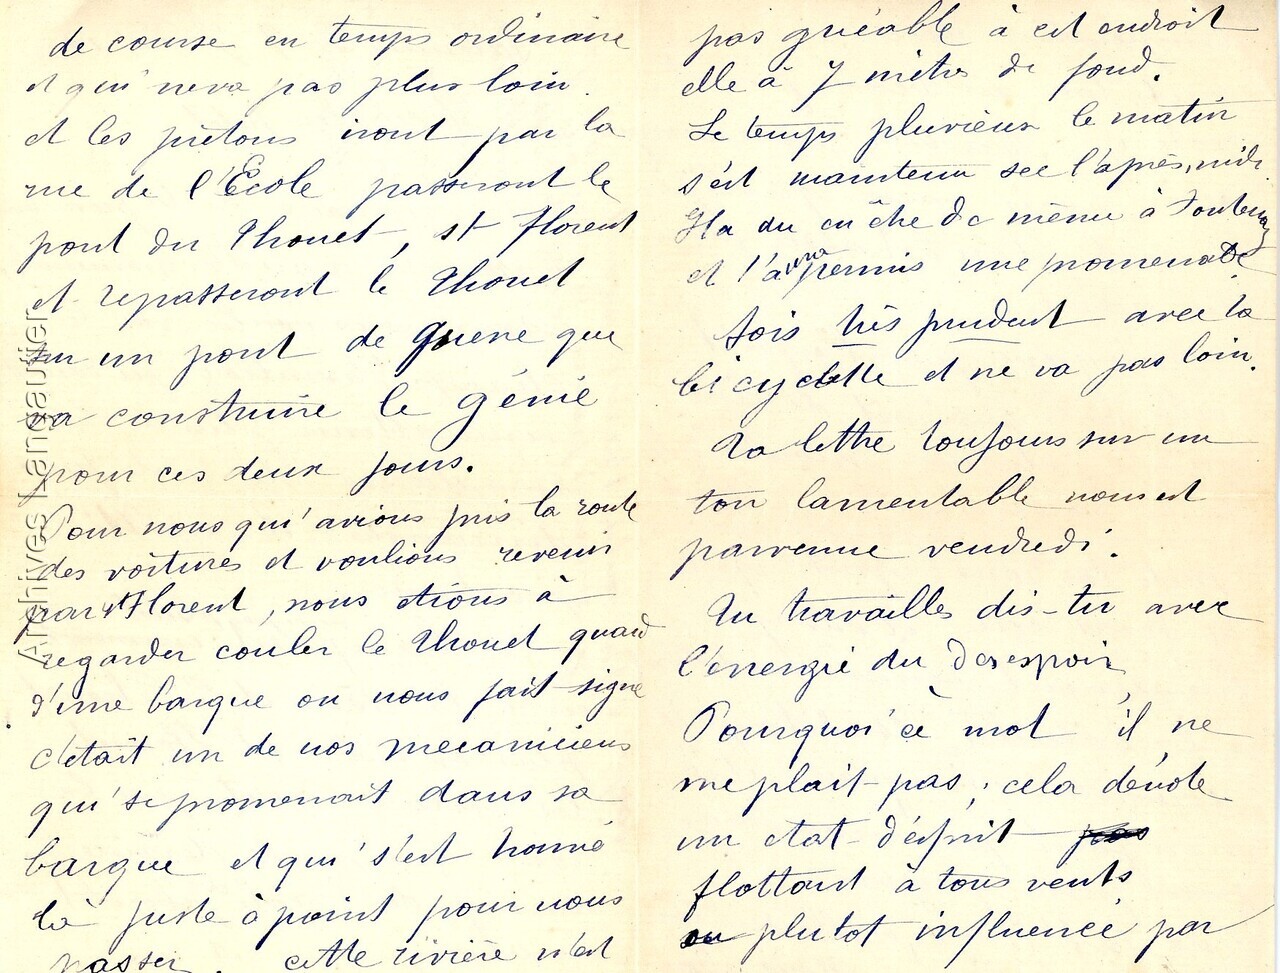 de course en temps ordinaire
et qui ne va pas plus loin.
et les piétons iront par la
rue de l'École passeront le
pont du Thouet, st Florent
et repasseront le Thouet
sur un pont de guerre que
va construire le génie
pour ces deux jours.
Pour nous qui avions pris la route
des voitures et voulions revenir
par st Florent, nous étions à
regarder couler le Thouet quand
d'une barque on nous fait signe
c'était un de nos mecaniciens
qui se promenait dans sa
barque et qui s'est trouvé
là juste à point pour nous
passer. cette rivière n'est
pas guéable à cet endroit
elle à 7 mètres de fond.
Le temps pluvieux le matin
s'est maintenu sec l'après, midi.
Il a du en être de même à Fontenay
et t'aura permis une promenade
Sois très prudent avec ta
bicyclette et ne va pas loin.
Ta lettre toujours sur un
ton lamentable nous est
parvenue vendredi.
Tu travailles dis-tu avec
l'énergie du desespoir
Pourquoi ce mot il ne
me plait pas; cela dénote
un état d'ésprit pas
flottant à tous vents
ou plutot influencé par
Archives Lanvautier